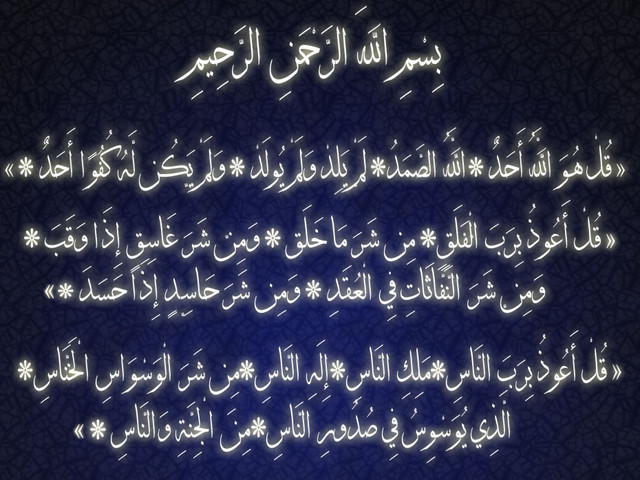 بِسْمِ اللَّهِ الرَّحْمَنِ الرَّحِيمِ
« قُلْ هُوَ اللَّهُ أَحَدٌ * اللَّهُ الصَّمَدُ * لَمْ يَلِدْ وَلَمْ يُولَدْ * وَلَمْ يَكُن لَّهُ كُفُوًا أَحَدٌ * »
« قُلْ أَعُوذُ بِرَبِّ الْفَلَقِ * مِن شَرِّ مَا خَلَقَ * وَمِن شَرِّ غَاسِقٍ إِذَا وَقَبَ *
وَمِن شَرِّ النَّفَّاثَاتِ فِي الْعُقَدِ * وَمِن شَرِّ حَاسِدٍ إِذَا حَسَدَ * »
« قُلْ أَعُوذُ بِرَبِّ النَّاسِ * مَلِكِ النَّاسِ * إِلَهِ النَّاسِ * مِن شَرِّ الْوَسْوَاسِ الْخَنَّاسِ *
الَّذِي يُوَسْوِسُ فِي صُدُورِ النَّاسِ * مِنَ الْجِنَّةِ وَالنَّاسِ * »